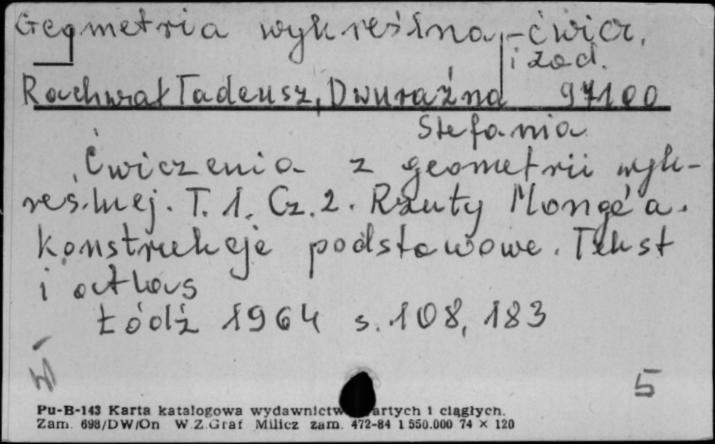 Geometria wykreślna - ćwicz.
i zad.
Rachwał Tadeusz, Dwuraźna 97100
Stefania
Ćwiczenia z geometrii wyk-
reślnej. T. 1. Cz. 2. Rzuty Monge'a.
Konstrukcje podstawowe. Tekst
i atlas
Łódź 1964 s. 108, 183
5
Pu-B-143 Karta katalogowa wydawnictw artych i ciągłych.
Zam. 698/DW/On W.Z.Graf Milicz zam. 472-84 1 550.000 74 × 120